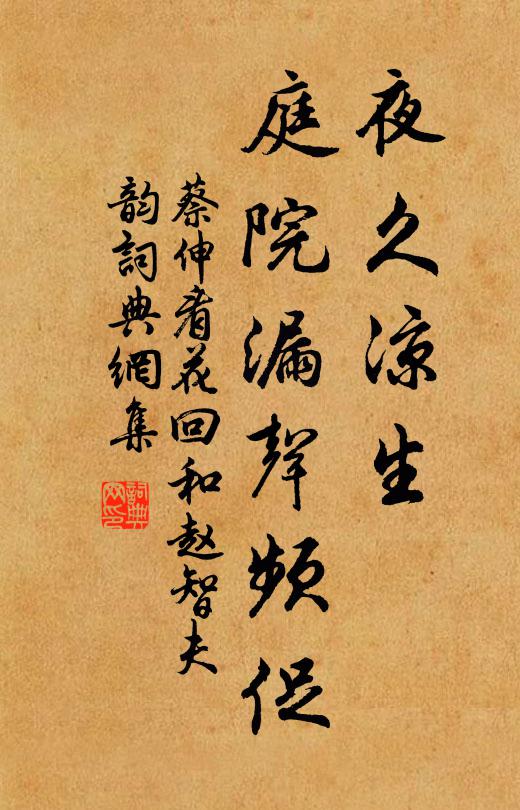 夜久涼生
庭院漏聲頻促
蔡伸看花回和赵智夫
韵詞典網集
詞典
网印